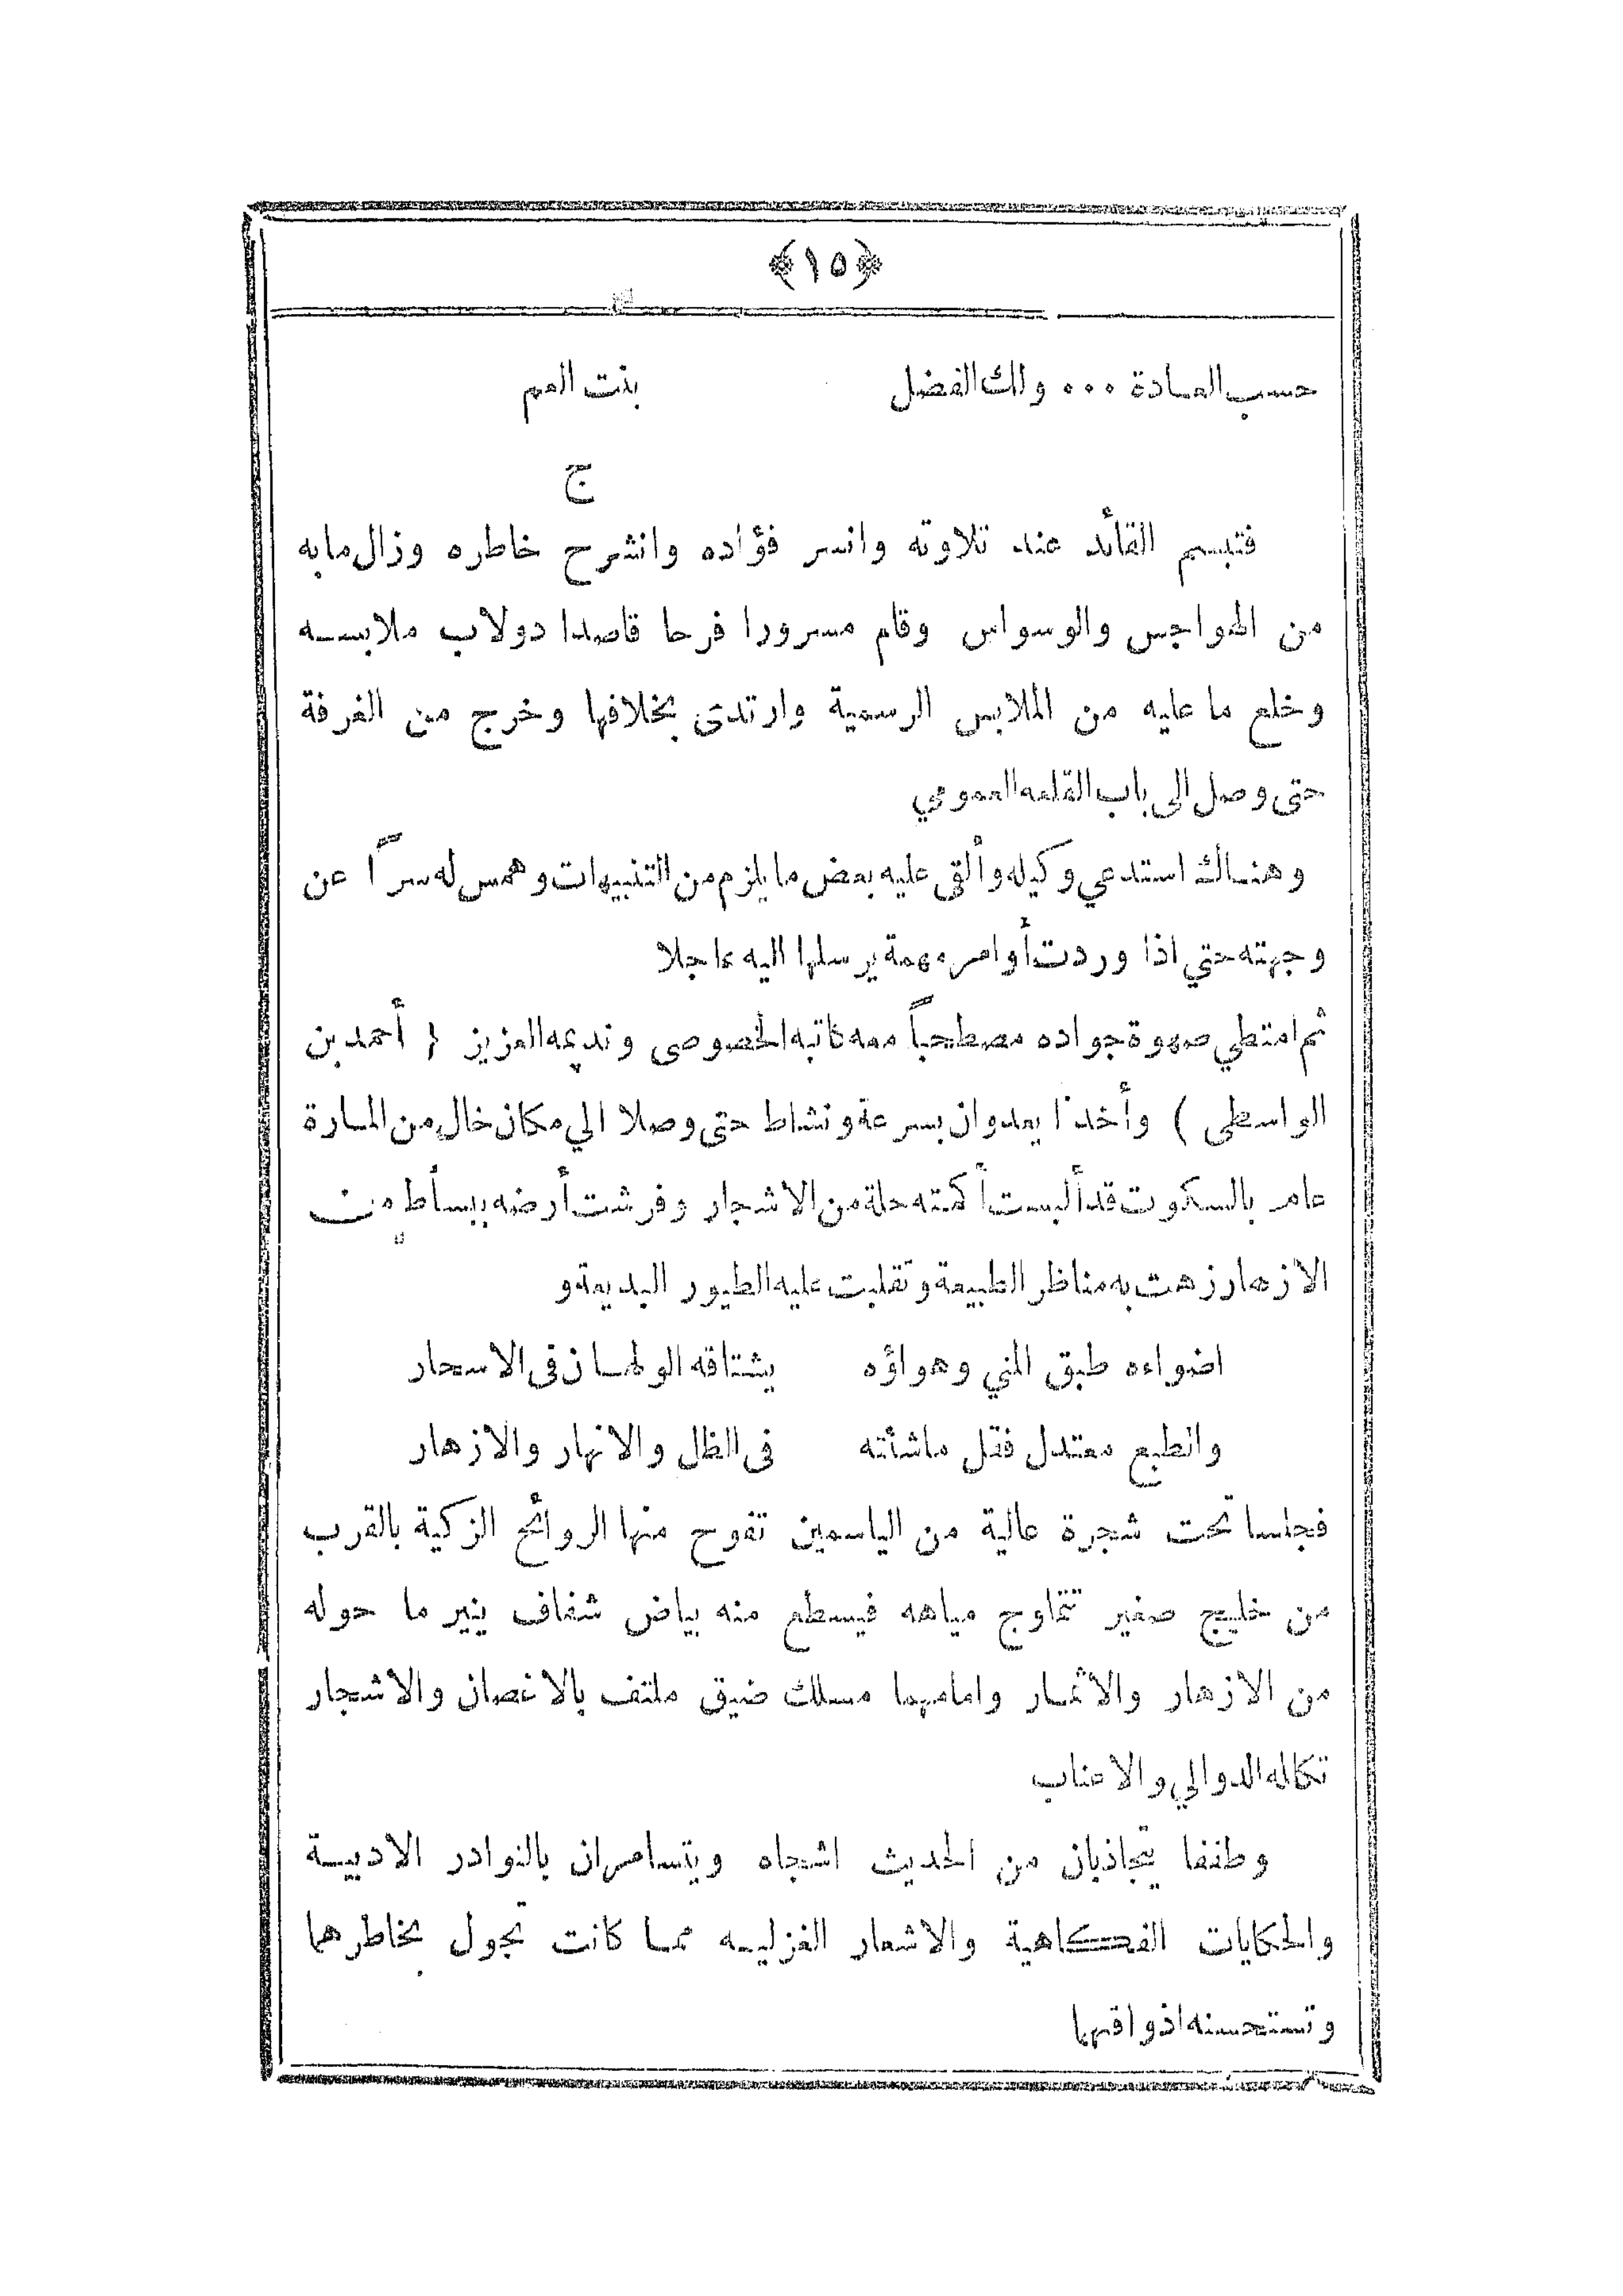 ﴿١٥﴾
حسب العادة ٠٠٠ ولك الفضل بنت العم
ج
فتبسم القائد عند تلاوته وانسر فؤاده وانشرح خاطره وزال مابه
من الهواجس والوسواس وقام مسرورا فرحا قاصدا دولاب ملابسه
وخلع ما عليه من الملابس الرسمية وارتدى بخلافها وخرج من الغرفة
حتى وصل الى باب القلعه العمومي
وهناك استدعي وكيله وألقى عليه بعض ما يلزم من التنبيهات وهمس له سراً عن
وجهته حتي اذا وردت أوامر مهمة يرسلها اليه عاجلا
ثم امتطي صهوة جواده مصطحباً معه كاتبه الخصوصى ونديمه العزيز ( أحمد بن
الواسطى ) وأخذا يعدوان بسرعة ونشاط حتى وصلا الي مكان خال من المارة
عامر بالسكوت قد ألبست أكمته حلة من الاشجار وفرشت أرضه ببساط من
الازهار زهت به مناظر الطبيعة وتقلبت عليه الطيور البديعة و
اضواءه طبق المني وهواؤه يشتاقه الولهان فى الاسحار
والطبع معتدل فقل ماشئته فى الظل والانهار والازهار
فجلسا تحت شجرة عالية من الياسمين تفوح منها الروائح الزكية بالقرب
من خليج صغير تتماوج مياهه فيسطع منه بياض شفاف ينير ما حوله
من الازهار والاثمار وامامهما مسلك ضيق ملتف بالاغصان والاشجار
تكالله الدوالي والاعناب
وطفقا يتجاذبان من الحديث اشجاه ويتسامران بالنوادر الادبية
والحكايات الفكاهية والاشعار الغزليه مما كانت تجول بخاطرهما
وتستحسنه اذواقهما